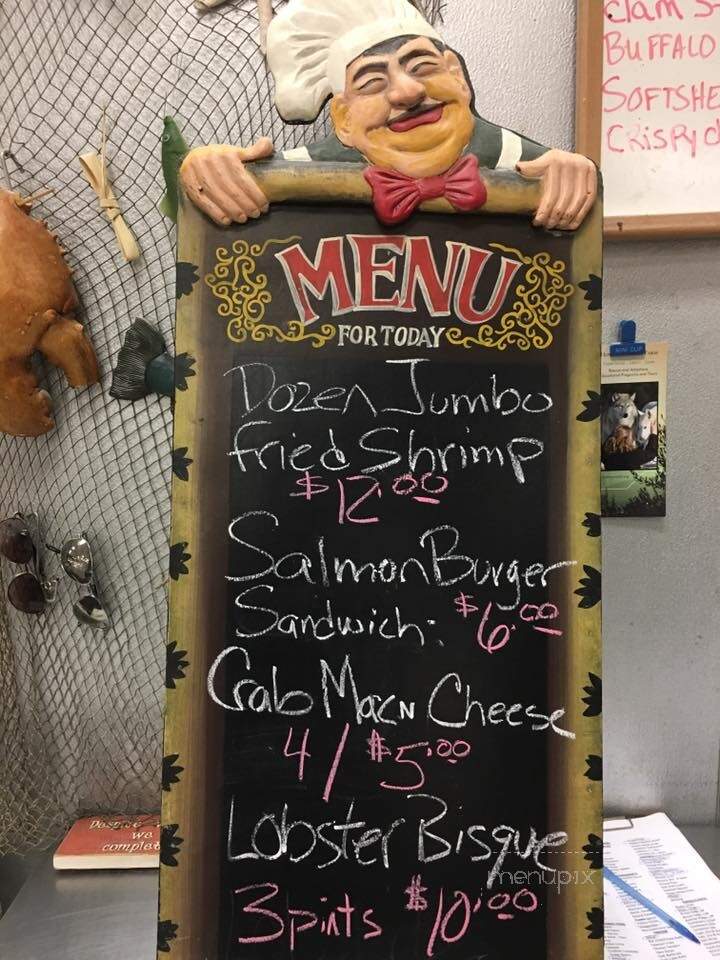 MENU
FOR TODAY
Dozen Jumbo
Fried Shrimp
$12.00
Salmon Burger
Sandwich: $6.00
Crab Mac N Cheese
4/$5.00
Lobster Bisque
3 pints $10.00
menupix
Clam
BUFFALO
SOFTSHE
CRISPY
we
complet